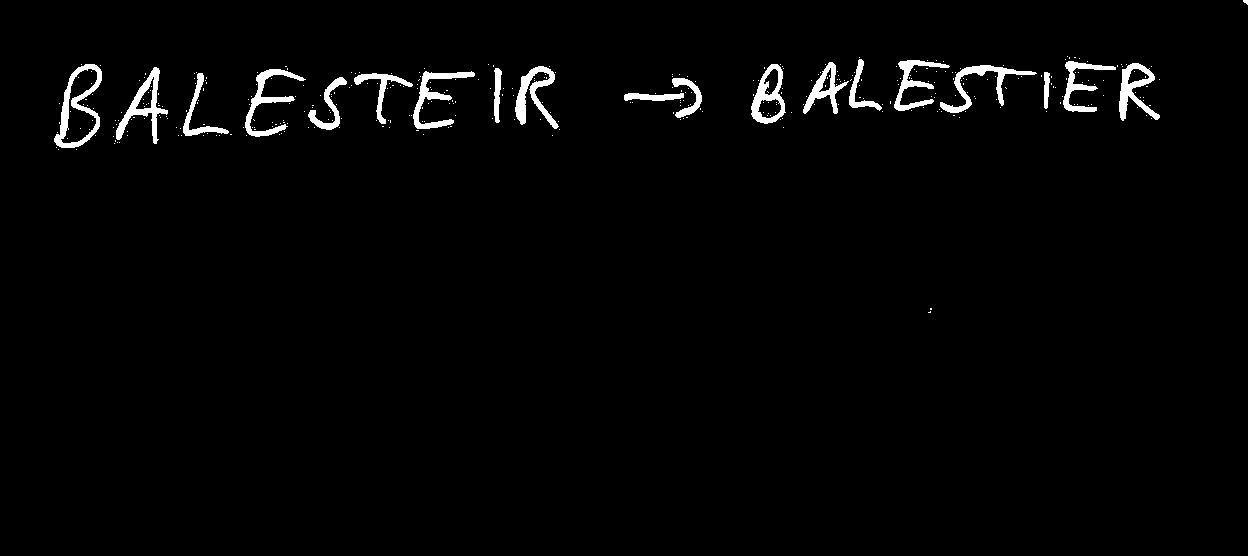 BALESTEIR → BALESTIER